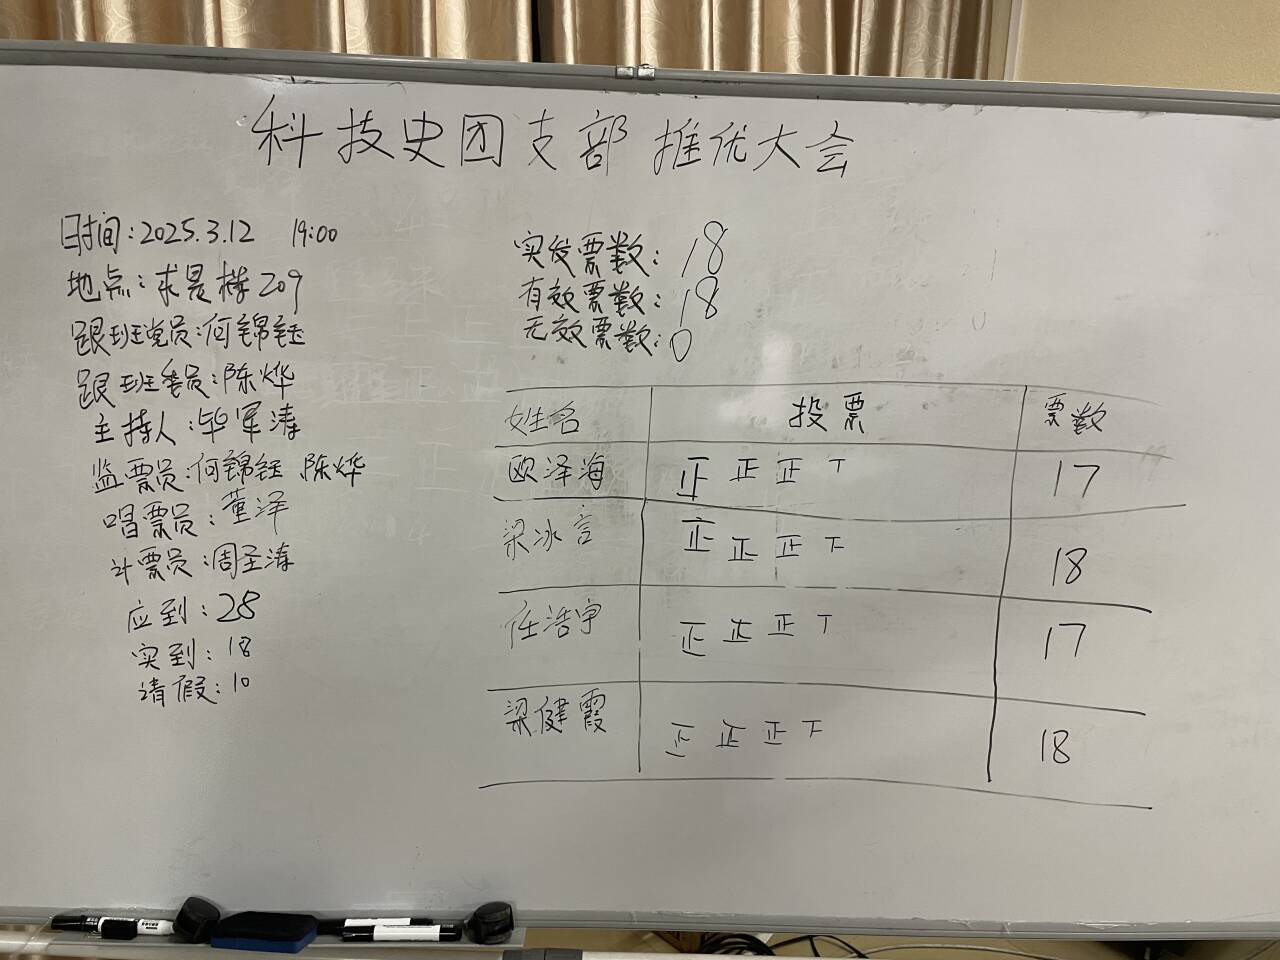 科技史团支部推优大会
时间:2025.3.12 19:00
地点:求是楼209
跟班党员:何锦钰
跟班委员:陈烨
主持人:毕军涛
监票员:何锦钰 陈烨
唱票员:董泽
计票员:周圣涛
应到:28
实到:18
请假:10
实发票数:18
有效票数:18
无效票数:0
姓名 投票 票数
欧泽海 正 正 正 丅 17
梁冰言 正 正 正 下 18
任浩宇 正 正 正 丅 17
梁健霞 正 正 正 下 18